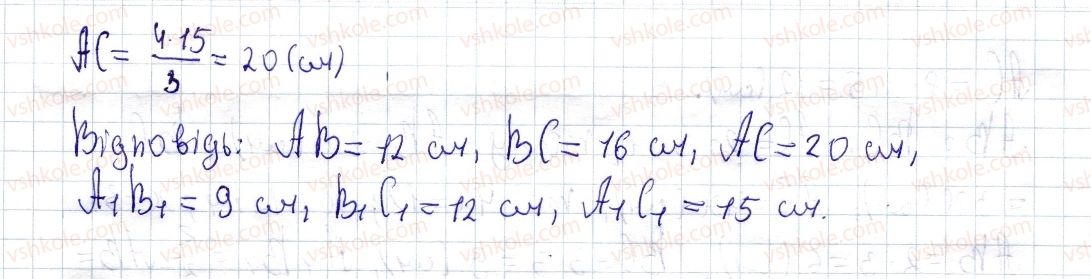 AC = 4·15/3 = 20 (см)
Відповідь: AB = 12 см, BC = 16 см, AC = 20 см,
A₁B₁ = 9 см, B₁C₁ = 12 см, A₁C₁ = 15 см.